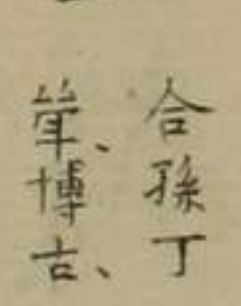 合孫丁
、博古、